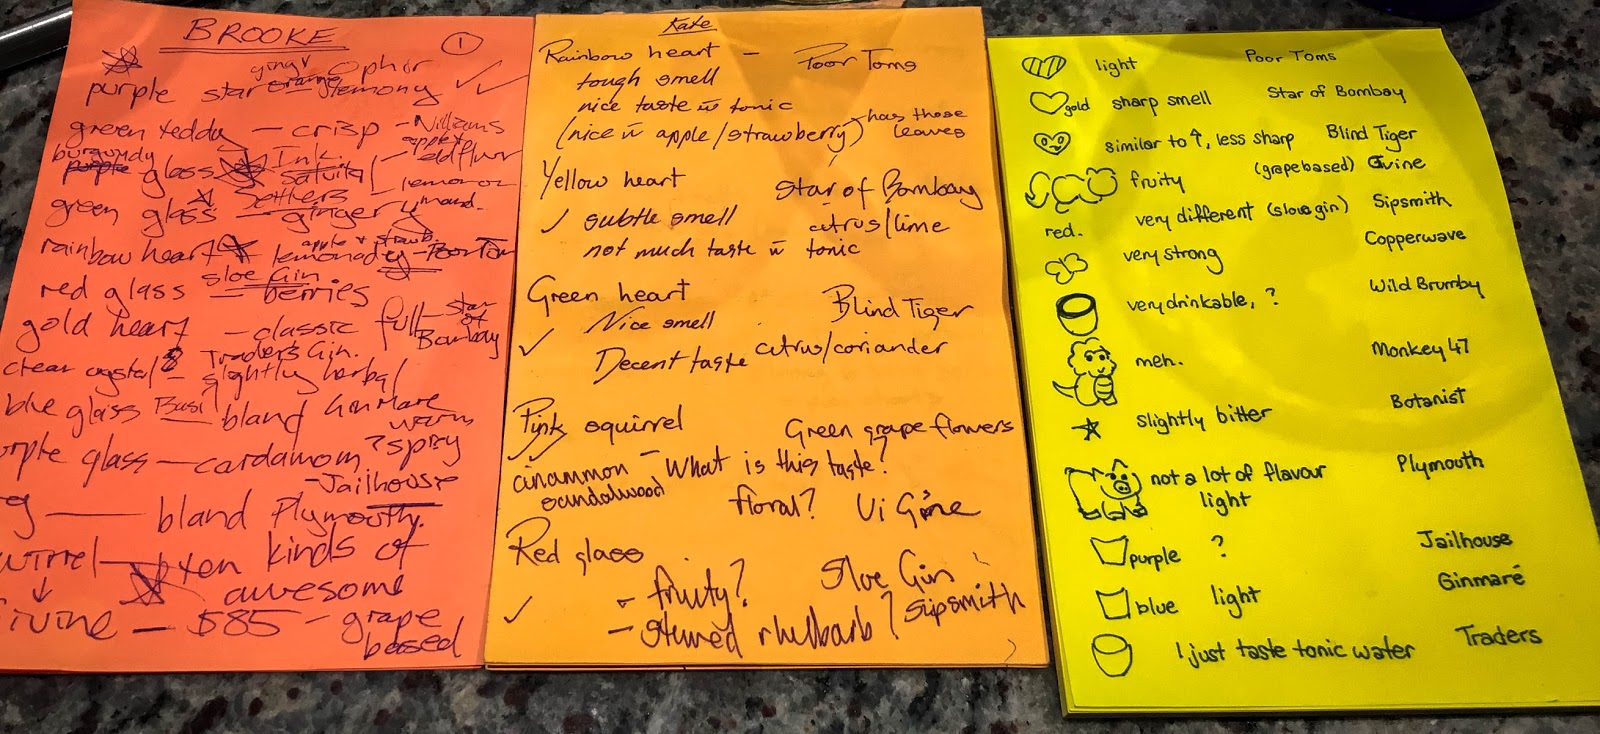 BROOKE
1
ginger Ophir
purple star orange lemony
green teddy — crisp - Williams
apple
burgundy
purple glass Ink - eldflwr
green glass — gingery
rainbow heart lemonady - Poor Tom
apple + strawb.
Sloe Gin
red glass — berries
gold heart — classic full - star of Bombay
clear crystal 8 - Traders Gin.
slightly herbal
blue glass Basil — bland Gin Mare
purple glass — cardamom? spicy
warm
- Jailhouse
bland Plymouth.
ten kinds of
awesome
$85 - grape
based
Kate
Rainbow heart — Poor Toms
tough smell
nice taste w tonic
(nice w apple/strawberry) - has those
leaves
Yellow heart Star of Bombay
✓ subtle smell citrus/lime
not much taste w tonic
Green heart Blind Tiger
✓ Nice smell
Decent taste citrus/coriander
Pink squirrel Green grape flowers
cinammon - What is this taste?
sandalwood floral? Vi Gine
Red glass
✓ - fruity? Sloe Gin
- stewed rhulbarb? Sipsmith
light Poor Toms
gold sharp smell Star of Bombay
similar to ↑, less sharp Blind Tiger
fruity (grape based) Gvine
red. very different (sloe gin) Sipsmith
very strong Copperwave
very drinkable, ? Wild Brumby
meh. Monkey 47
slightly bitter Botanist
not a lot of flavour Plymouth
light
purple ? Jailhouse
blue light Ginmaré
I just taste tonic water Traders